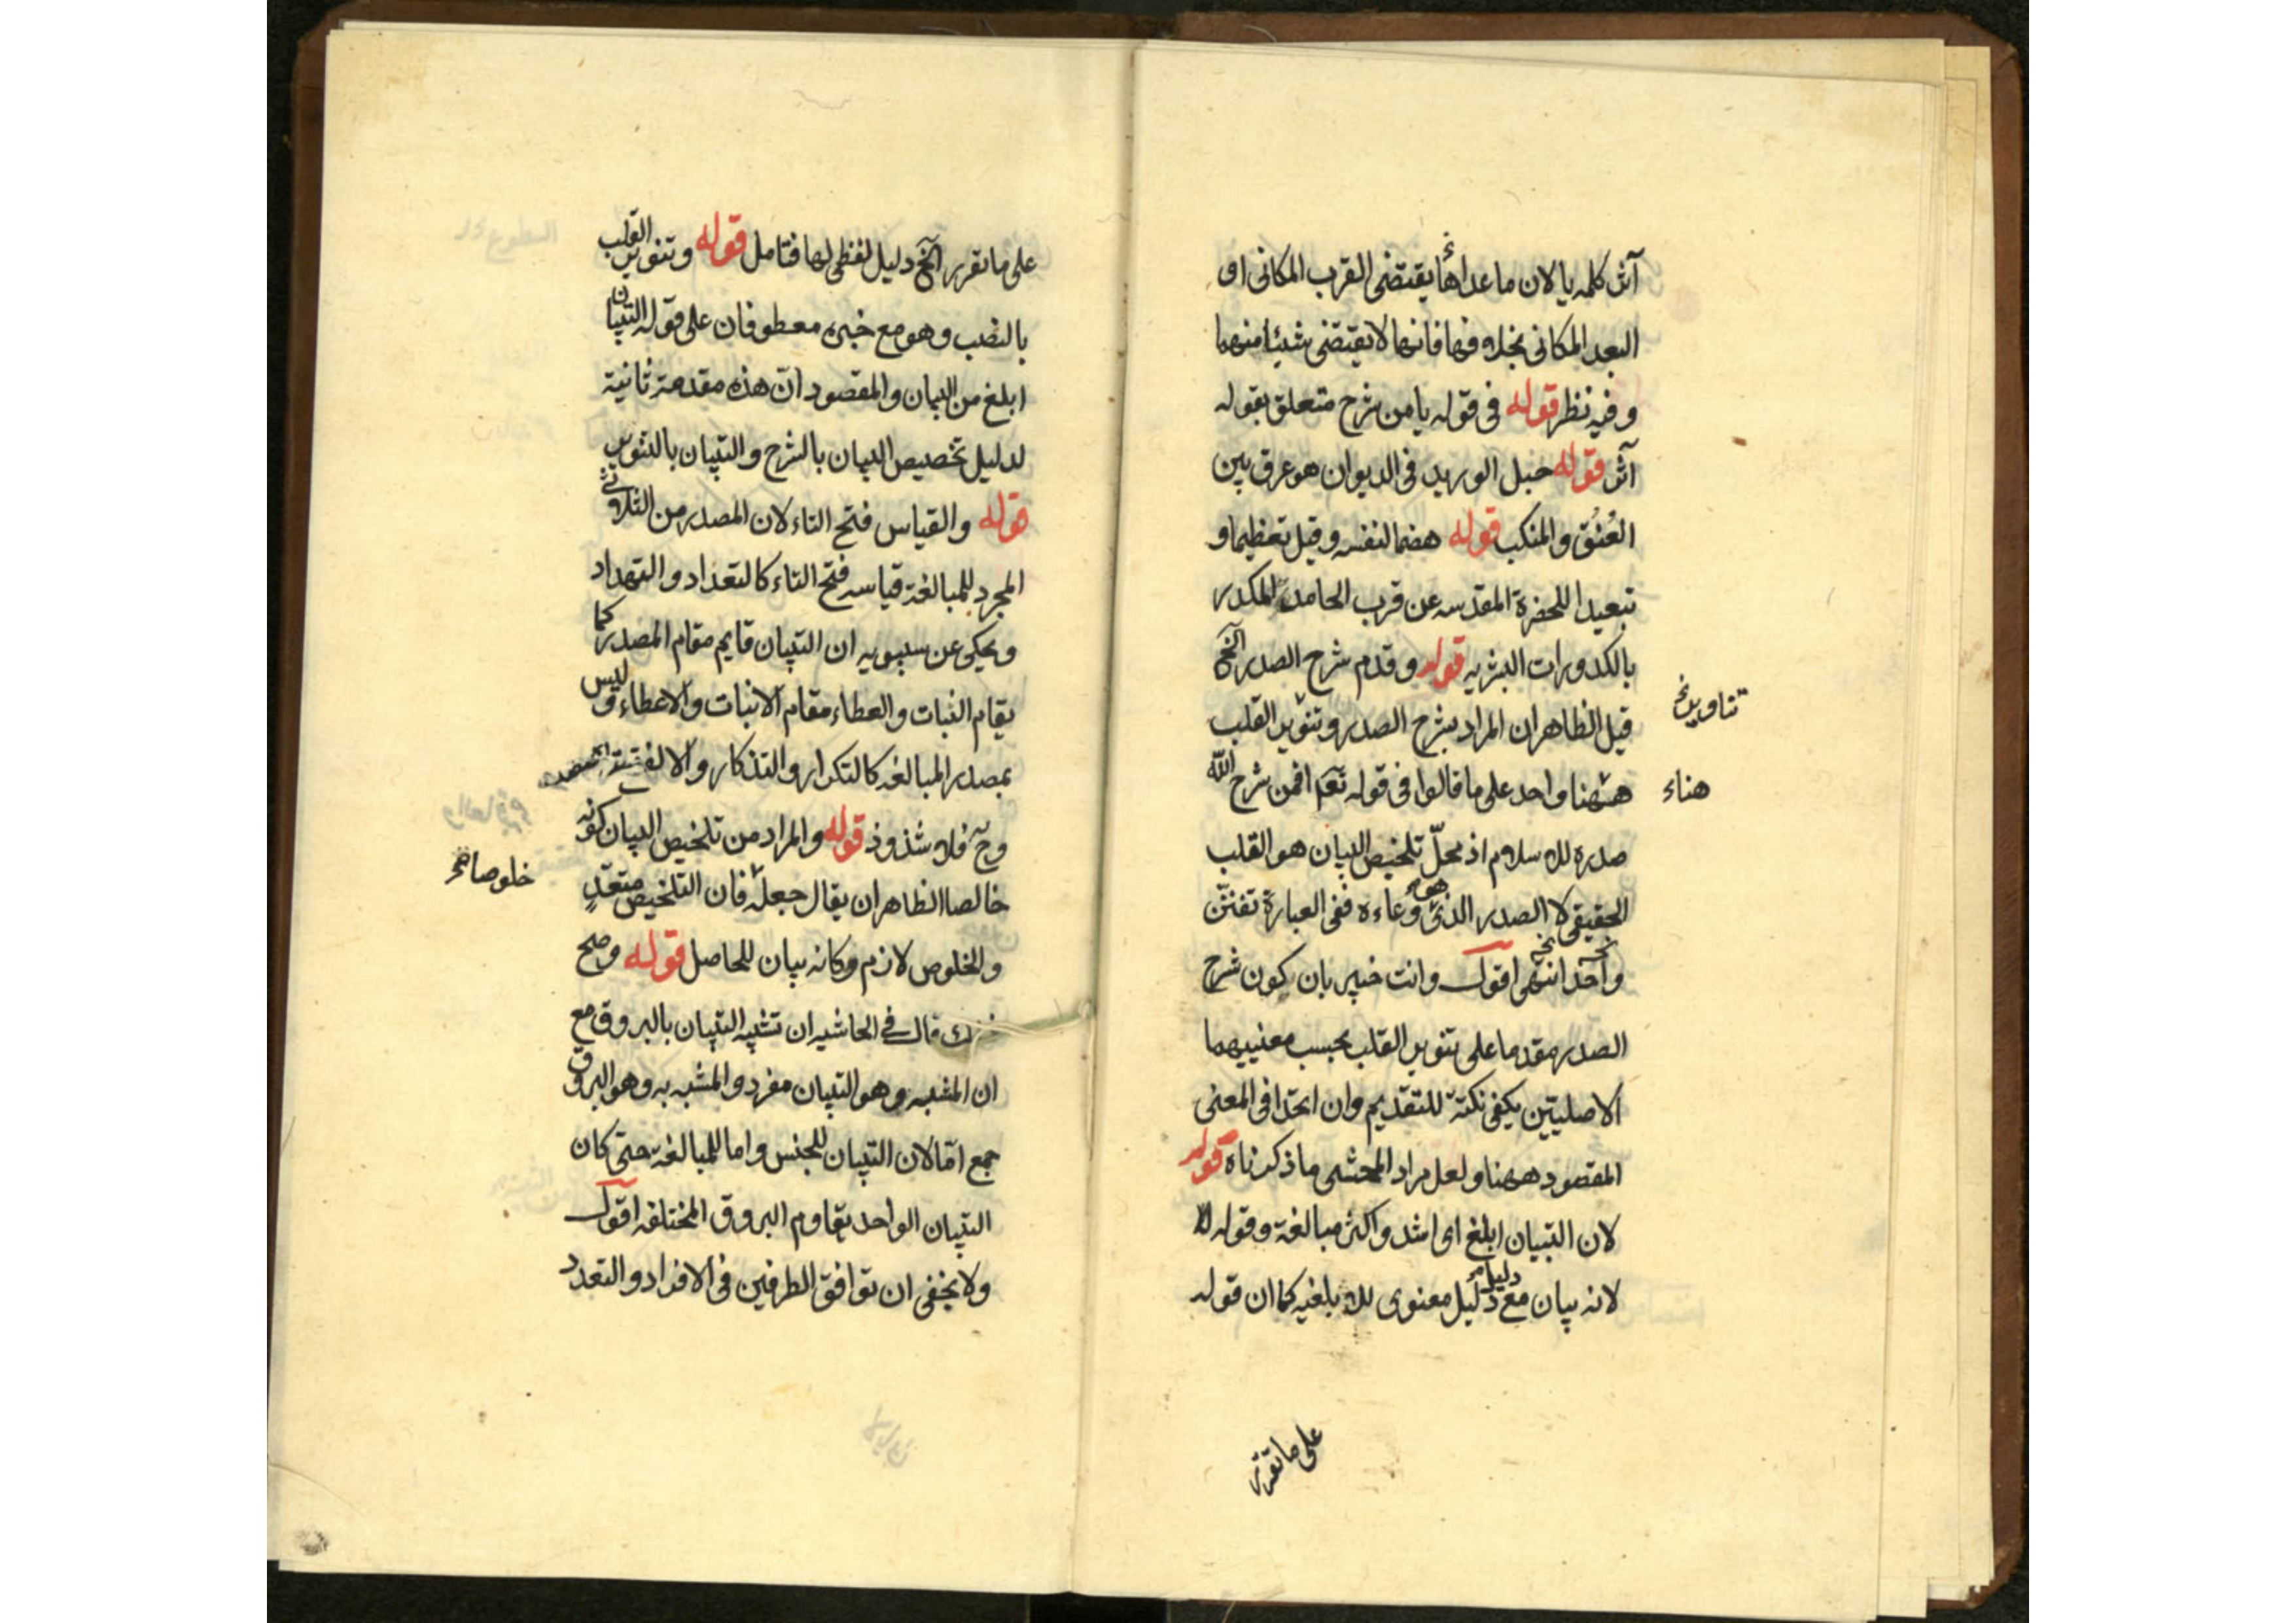 آثر كلمه يا لان ما عداها يقتضى القرب المكانى او
البعد المكانى بخلافها فانها لا يقتضى شيئا منهما
وفيه نظر قوله فى قوله يا من شرح متعلق بقوله
آثر قوله حبل الوريد فى الديوان هو عرق بين
العُنُق والمنكب قوله هضما لنفسه وقيل تعظيما و
تبعيدا للحضرة المقدسه عن قرب الحامد المكدر
بالكدورات البشريه قوله وقدم شرح الصدر الخ
قيل الظاهر ان المراد بشرح الصدر وتنوير القلب
ههنا واحد على ما قالوا فى قوله تعه افمن شرح الله
هناء
صدره للاسلام اذ محلّ تلخيص البيان هو القلب
الحقيقى لا الصدر الذى هو وعاءه ففى العبارة تفنّن
واحد انتهى اقول وانت خبير بان كون شرح
الصدر مقدما على تنوير القلب بحسب معنييهما
الاصليتين يكفى نكتة للتقديم وان اتحدا فى المعنى
المقصود ههنا ولعل مراد المحشى ما ذكرناه قوله
لان التبيان ابلغ اى اشد واكثر مبالغة وقوله
لانه بيان مع دليل معنوى للابلغيه كما ان قوله
على ما تقرر
على ما تقرر الخ دليل لفظى لها فتامل قوله وتنوير القلب
بالنصب وهو مع خبره معطوفان على قوله التبيان
ابلغ من البيان والمقصود انّ هذه مقدمة ثانية
لدليل تخصيص البيان بالشرح والتبيان بالتنوير
قوله والقياس فتح التاء لان المصدر من الثلاثى
المجرد للمبالغة قياسه فتح التاء كالتعداد والتهداد
ويحكى عن سيبويه ان التبيان قايم مقام المصدر كما
يقام النبات والعطاء مقام الانبات والاعطاء وليس
بمصدر المبالغه كالتكرار والتذكار والا لفتحت
وح فلا شذوذ قوله والمراد من تلخيص البيان كونه
خالصا الظاهر ان يقال جعله فان التلخيص متعدٍ
خلوصا
والخلوص لازم وكانه بيان للحاصل قوله وصح
قال فى الحاشيه ان تشبيه التبيان بالبروق مع
ان المشبه وهو التبيان مفرد والمشبه به وهو البروق
جمع امّا لان التبيان للجنس واما للمبالغة حتى كان
التبيان الواحد يقاوم البروق المختلفه اقول
ولا يخفى ان توافق الطرفين فى الافراد والتعدد